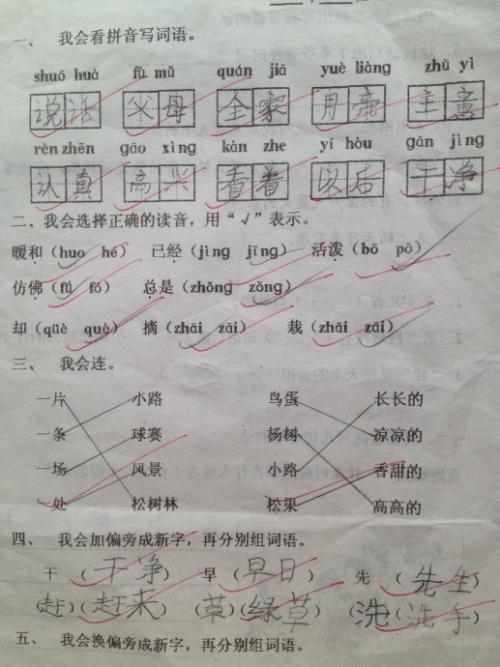 一、 我会看拼音写词语。
shuō huà fù mǔ quán jiā yuè liàng zhǔ yì
说话 父母 全家 月亮 主意
rèn zhēn gāo xìng kàn zhe yǐ hòu gān jìng
认真 高兴 看着 以后 干净
二、我会选择正确的读音，用“√”表示。
暖和（huo hé） 已经（jìng jīng） 活泼（bō pō）
仿佛（fú fó） 总是（zhǒng zǒng）
却（qüè què） 摘（zhāi zāi） 栽（zhāi zāi）
三、 我会连。
一片 小路 鸟蛋 长长的
一条 球赛 杨树 凉凉的
一场 风景 小路 香甜的
一处 松树林 松果 高高的
四、 我会加偏旁成新字，再分别组词语。
干（干净） 早（早日） 先（先生）
（赶）（赶来） （草）（绿草） （洗）（洗手）
五、 我会换偏旁成新字，再分别组词语。